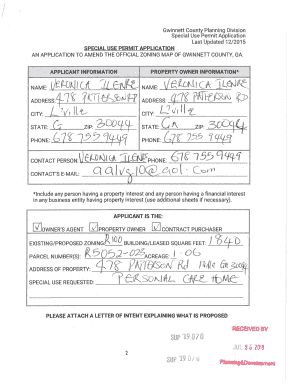 Gwinnett County Planning Division
Special Use Permit Application
Last Updated 12/2015
SPECIAL USE PERMIT APPLICATION
AN APPLICATION TO AMEND THE OFFICIAL ZONING MAP OF GWINNETT COUNTY, GA.
APPLICANT INFORMATION PROPERTY OWNER INFORMATION*
NAME: VERONICA NAME: VERONICA
ADDRESS: 478 PATTERSON Rd ADDRESS: 478 PATTERSON RD
CITY: L'Ville CITY: L'Ville
STATE: G ZIP: 30044 STATE: Ga ZIP: 30044
PHONE: 678 755 9449 PHONE: 678 755 9449
CONTACT PERSON: VERONICA PHONE: 678 755 9449
CONTACT'S E-MAIL: @aol.com
*Include any person having a property interest and any person having a financial interest
in any business entity having property interest (use additional sheets if necessary).
APPLICANT IS THE:
OWNER'S AGENT PROPERTY OWNER CONTRACT PURCHASER
EXISTING/PROPOSED ZONING R100 BUILDING/LEASED SQUARE FEET: 1840
PARCEL NUMBER(S): R5052-025 ACREAGE: 1.06
ADDRESS OF PROPERTY: 478 PATTERSON Rd Ga 30044
SPECIAL USE REQUESTED: PERSONAL CARE HOME
PLEASE ATTACH A LETTER OF INTENT EXPLAINING WHAT IS PROPOSED
RECEIVED BY
SUP '19 070
2
SUP '19 070
Planning & Development